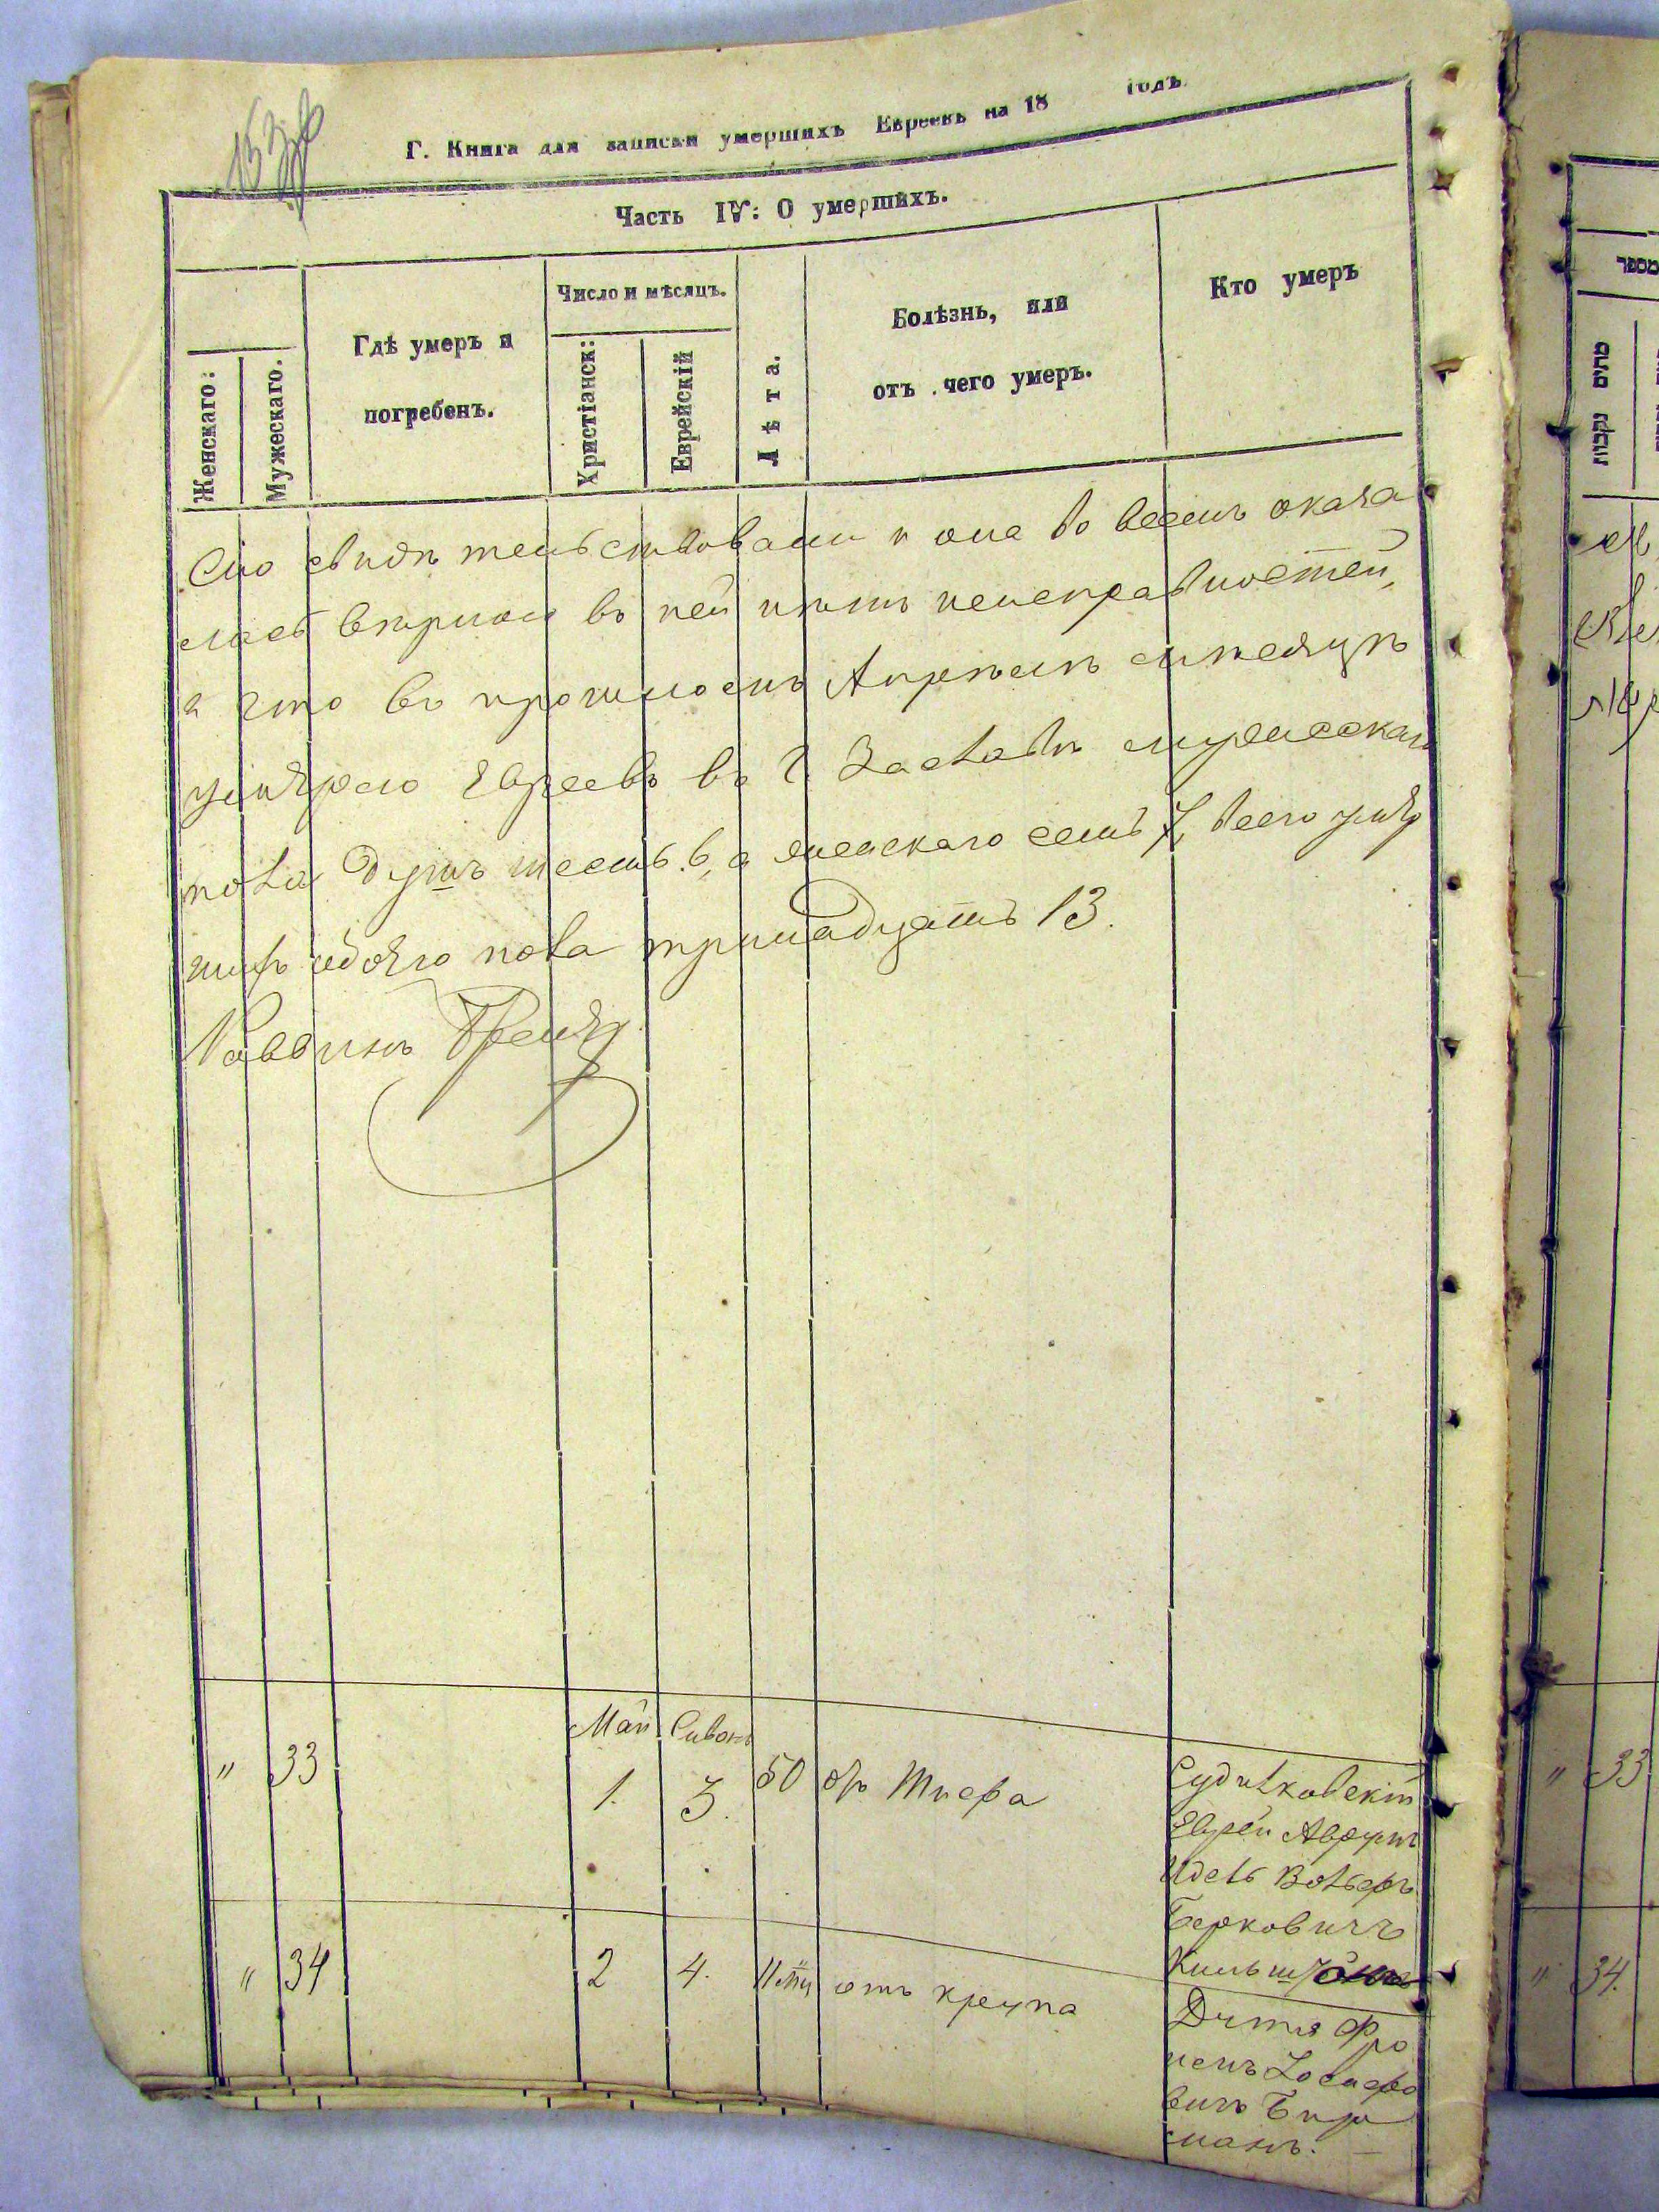 Г. Книга для записки умершихъ Евреевъ на 18 годъ
Часть IV: О умершихъ.
Женскаго:
Мужескаго.
Гдѣ умеръ и
погребенъ.
Число и мѣсяцъ.
Христіанск:
Еврейскій
Лѣта.
Болѣзнь, или
отъ чего умеръ.
Кто умеръ
Сію свидѣтельствовали и она во всемъ оказа
лась вѣрною въ ней нѣтъ неисправностей,
а что въ прошломъ Апрѣлѣ мѣсяцѣ
умерло Евреевъ въ Г. Заславѣ мужескаго
пола душъ шесть 6, а женскаго семь 7, всего умер
шихъ обоего пола тринадцать 13.
Раввинъ
Май Сивонъ
" 33 1. 3. 50 отъ Тифа Судилковскій
Еврей Аврумъ
Идель Вольфъ
Берковичъ
" 34 2 4. отъ крупа
Дитя Фро
имъ Іосифо
вичъ Бир
манъ.
מספר
מתים נקבות
" 33
" 34.